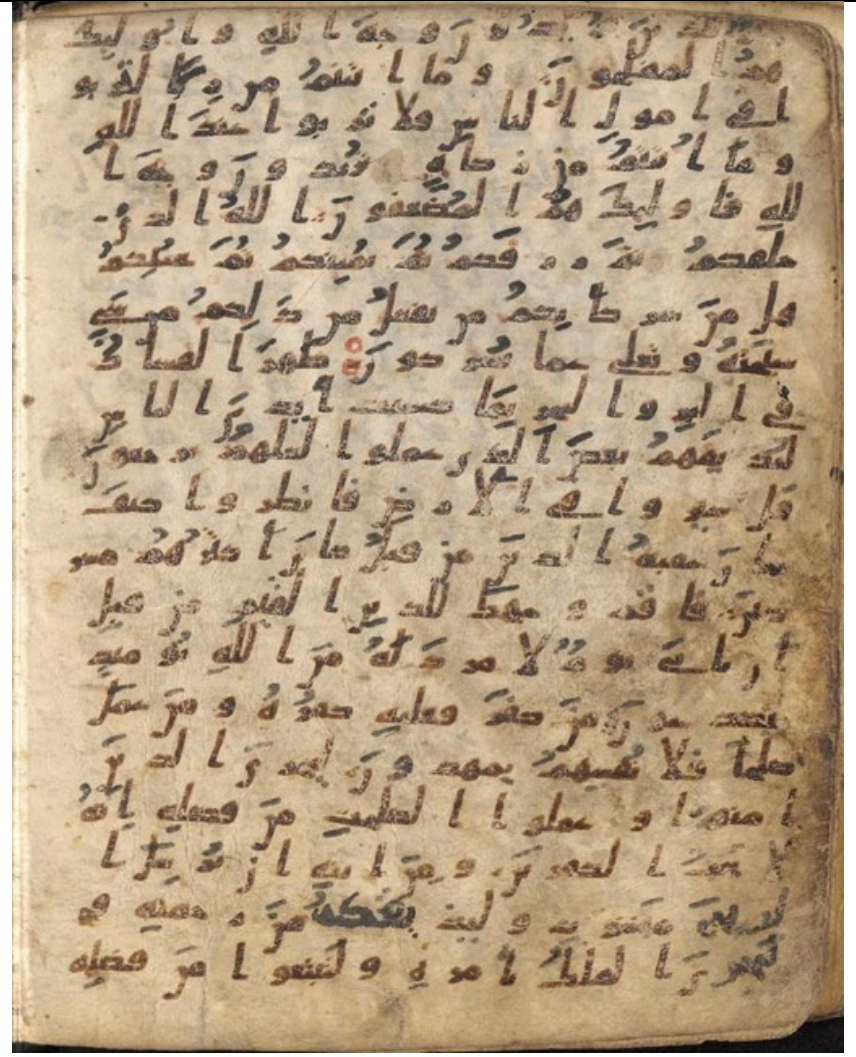 يريدون وجه الله واوليك
هم المفلحون وما اتيتم من ربا لتربو
ا في امول الناس فلا يربوا عند الله
وما اتيتم من زكوة تريدون وجه ا
لله فاوليك هم المضعفون الله الذي
خلقكم ثم رزقكم ثم يميتكم ثم يحييكم
هل من شركايكم من يفعل من ذلكم من شي
سبحنه وتعلى عما يشركون ظهر الفساد
في البر والبحر بما كسبت ايدي الناس
ليذيقهم بعض الذي عملوا لعلهم يرجعون
قل سيروا في الارض فانظروا كيف
كان عقبة الذين من قبل كان اكثرهم مشر
كين فاقم وجهك للدين القيم من قبل
ان ياتي يوم لا مرد له من الله يوميذ
يصدعون من كفر فعليه كفره ومن عمل
صلحا فلانفسهم يمهدون ليجزي الذين
امنوا وعملوا الصلحت من فضله انه
لا يحب الكفرين ومن ايته ان يرسل ا
لرياح مبشرت وليذيقكم من رحمته و
لتجري الفلك بامره ولتبتغوا من فضله